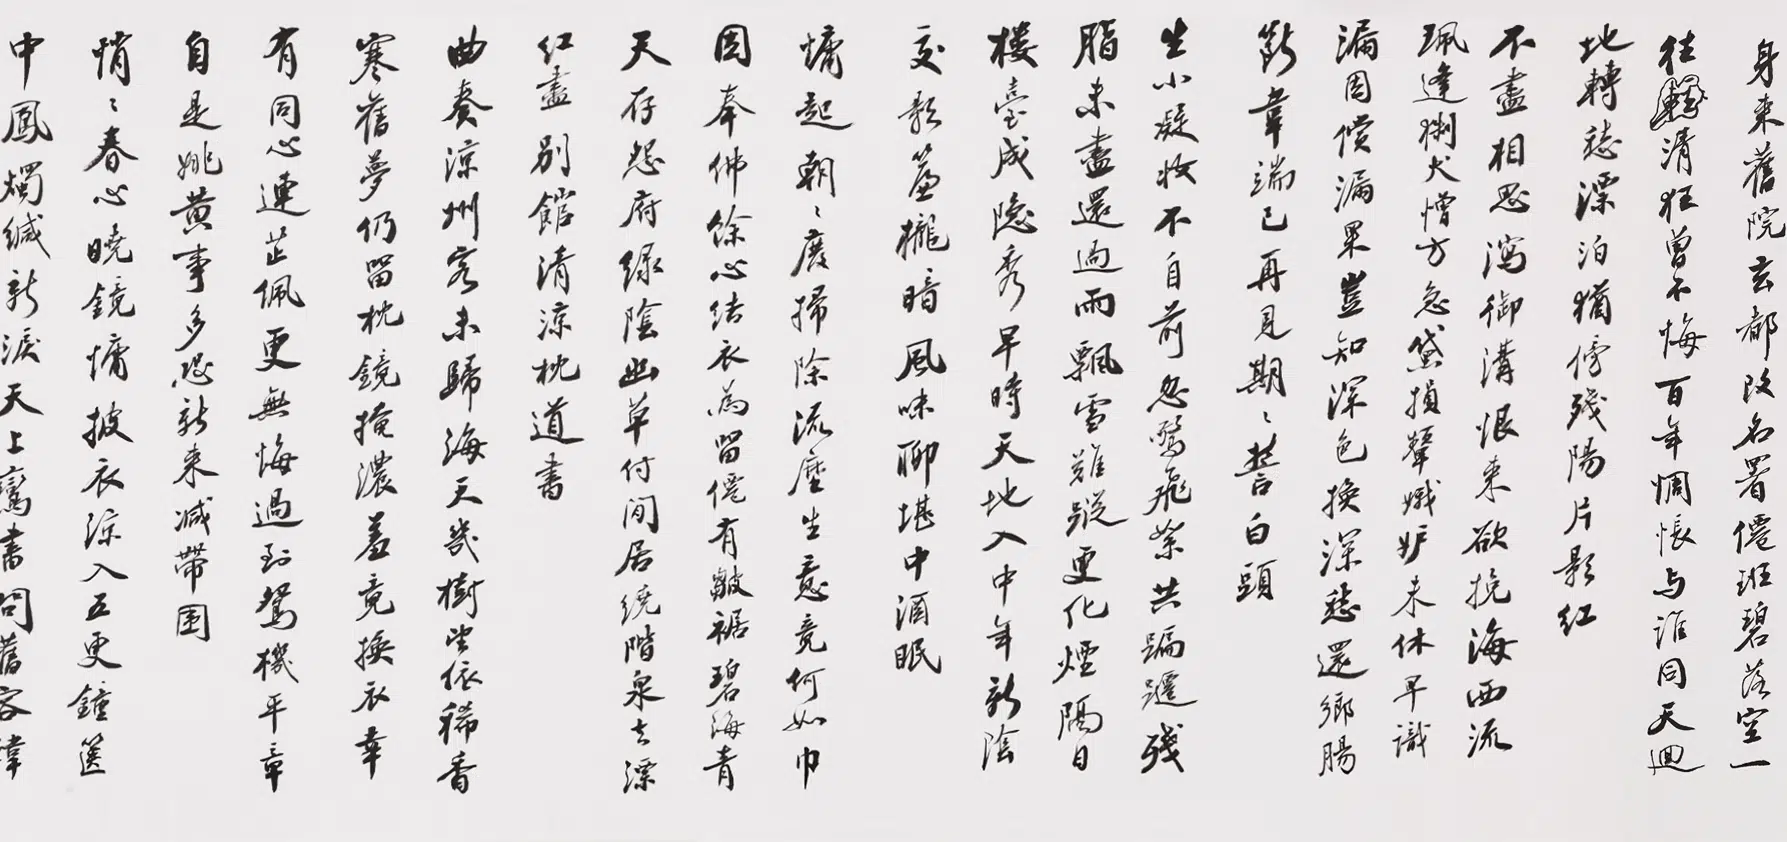 身來舊院玄都改名署僊班碧落空一
往清狂曾不悔百年惆悵与誰同天迴
地轉愁漂泊猶傍殘陽片影紅
不盡相思瀉御溝恨來欲挽海西流
珮逢猘犬憎方急黛損顰蛾妒未休早識
漏因償漏果豈知深色換深愁還鄉腸
斷韋端已再見期〻誓白頭
生小凝妝不自前忽驚飛絮共蹁躚殘
脂未盡還過雨飄雪難蹤更化煙隔日
樓臺成隱秀早時天地入中年新陰
交影簾櫳暗風味聊堪中酒眠
慵起朝〻廢掃除流塵生意竟何如巾
因奉佛餘心結衣為留僊有皺裾碧海青
天存怨府綠陰幽草付閒居繞階泉去漂
紅盡別館清涼枕道書
曲奏涼州客未歸海天幾樹坐依稀香
寒舊夢仍留枕鏡掩濃羞竟換衣幸
有同心連芷佩更無悔過到駕機平章
自是姚黃事多恐新來減帶圍
悄〻春心曉鏡慵披衣涼入五更鐘篋
中鳳燭緘新淚天上鸞書問舊容